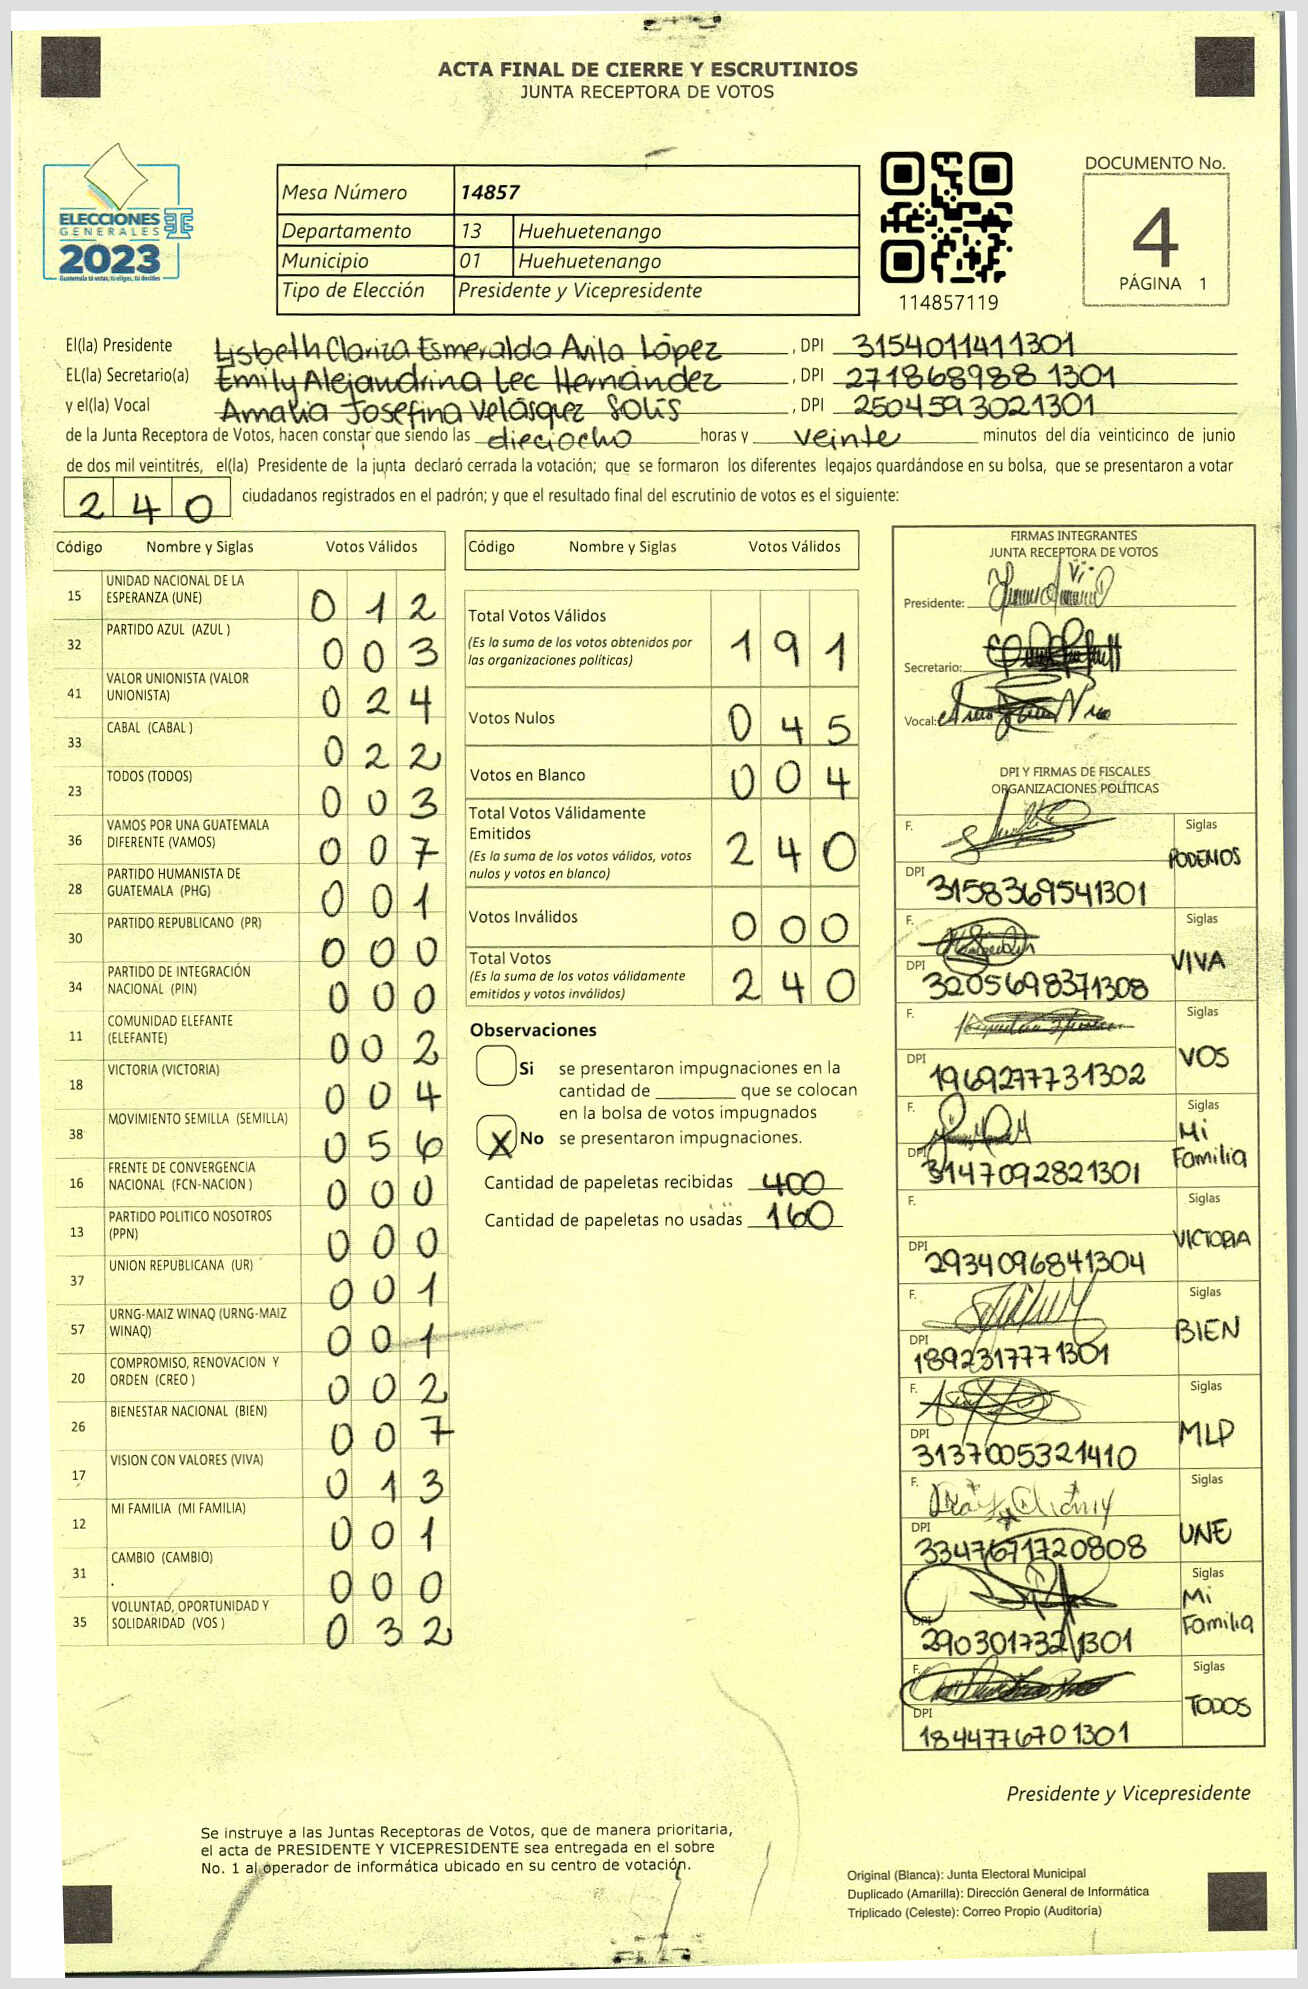 ACTA FINAL DE CIERRE Y ESCRUTINIOS
JUNTA RECEPTORA DE VOTOS
ELECCIONES
GENERALES
2023
Guatemala tú votas, tú eliges, tú decides
Mesa Número 14857
Departamento 13 Huehuetenango
Municipio 01 Huehuetenango
Tipo de Elección Presidente y Vicepresidente
114857119
DOCUMENTO No.
4
PÁGINA 1
El(la) Presidente Lisbeth Clariza Esmeralda Avila López , DPI 3154011411301
EL(la) Secretario(a) Emily Alejandrina Lec Hernández , DPI 271868988 1301
y el(la) Vocal Amalia Josefina Velásquez Solís , DPI 2504593021301
de la Junta Receptora de Votos, hacen constar que siendo las dieciocho horas y veinte minutos del día veinticinco de junio
de dos mil veintitrés, el(la) Presidente de la junta declaró cerrada la votación; que se formaron los diferentes legajos guardándose en su bolsa, que se presentaron a votar
240 ciudadanos registrados en el padrón; y que el resultado final del escrutinio de votos es el siguiente:
Código Nombre y Siglas Votos Válidos
15 UNIDAD NACIONAL DE LA
ESPERANZA (UNE) 012
32 PARTIDO AZUL (AZUL ) 003
41 VALOR UNIONISTA (VALOR
UNIONISTA) 024
33 CABAL (CABAL ) 022
23 TODOS (TODOS) 003
36 VAMOS POR UNA GUATEMALA
DIFERENTE (VAMOS) 007
28 PARTIDO HUMANISTA DE
GUATEMALA (PHG) 001
30 PARTIDO REPUBLICANO (PR) 000
34 PARTIDO DE INTEGRACIÓN
NACIONAL (PIN) 000
11 COMUNIDAD ELEFANTE
(ELEFANTE) 002
18 VICTORIA (VICTORIA) 004
38 MOVIMIENTO SEMILLA (SEMILLA) 056
16 FRENTE DE CONVERGENCIA
NACIONAL (FCN-NACION ) 000
13 PARTIDO POLITICO NOSOTROS
(PPN) 000
37 UNION REPUBLICANA (UR) 001
57 URNG-MAIZ WINAQ (URNG-MAIZ
WINAQ) 001
20 COMPROMISO, RENOVACION Y
ORDEN (CREO ) 002
26 BIENESTAR NACIONAL (BIEN) 007
17 VISION CON VALORES (VIVA) 013
12 MI FAMILIA (MI FAMILIA) 001
31 CAMBIO (CAMBIO) 000
35 VOLUNTAD, OPORTUNIDAD Y
SOLIDARIDAD (VOS ) 032
Código Nombre y Siglas Votos Válidos
Total Votos Válidos 191
(Es la suma de los votos obtenidos por
las organizaciones políticas)
Votos Nulos 045
Votos en Blanco 004
Total Votos Válidamente
Emitidos 240
(Es la suma de los votos válidos, votos
nulos y votos en blanco)
Votos Inválidos 000
Total Votos 240
(Es la suma de los votos válidamente
emitidos y votos inválidos)
Observaciones
Si se presentaron impugnaciones en la
cantidad de ________ que se colocan
en la bolsa de votos impugnados
X No se presentaron impugnaciones.
Cantidad de papeletas recibidas 400
Cantidad de papeletas no usadas 160
FIRMAS INTEGRANTES
JUNTA RECEPTORA DE VOTOS
Presidente:
Secretario:
Vocal:
DPI Y FIRMAS DE FISCALES
ORGANIZACIONES POLÍTICAS
F. Siglas
PODEMOS
DPI 3158369541301
F. Siglas
VIVA
DPI 3205698371308
F. Siglas
VOS
DPI 1969277731302
F. Siglas
Mi
Familia
DPI 3147092821301
F. Siglas
VICTORIA
DPI 2934096841304
F. Siglas
BIEN
DPI 1892317771301
F. Siglas
MLP
DPI 3137005321410
F. Siglas
UNE
DPI 3347671720808
F. Siglas
Mi
Familia
DPI 2903017321301
F. Siglas
TODOS
DPI 1844776701301
Presidente y Vicepresidente
Se instruye a las Juntas Receptoras de Votos, que de manera prioritaria,
el acta de PRESIDENTE Y VICEPRESIDENTE sea entregada en el sobre
No. 1 al operador de informática ubicado en su centro de votación.
Original (Blanca): Junta Electoral Municipal
Duplicado (Amarilla): Dirección General de Informática
Triplicado (Celeste): Correo Propio (Auditoría)